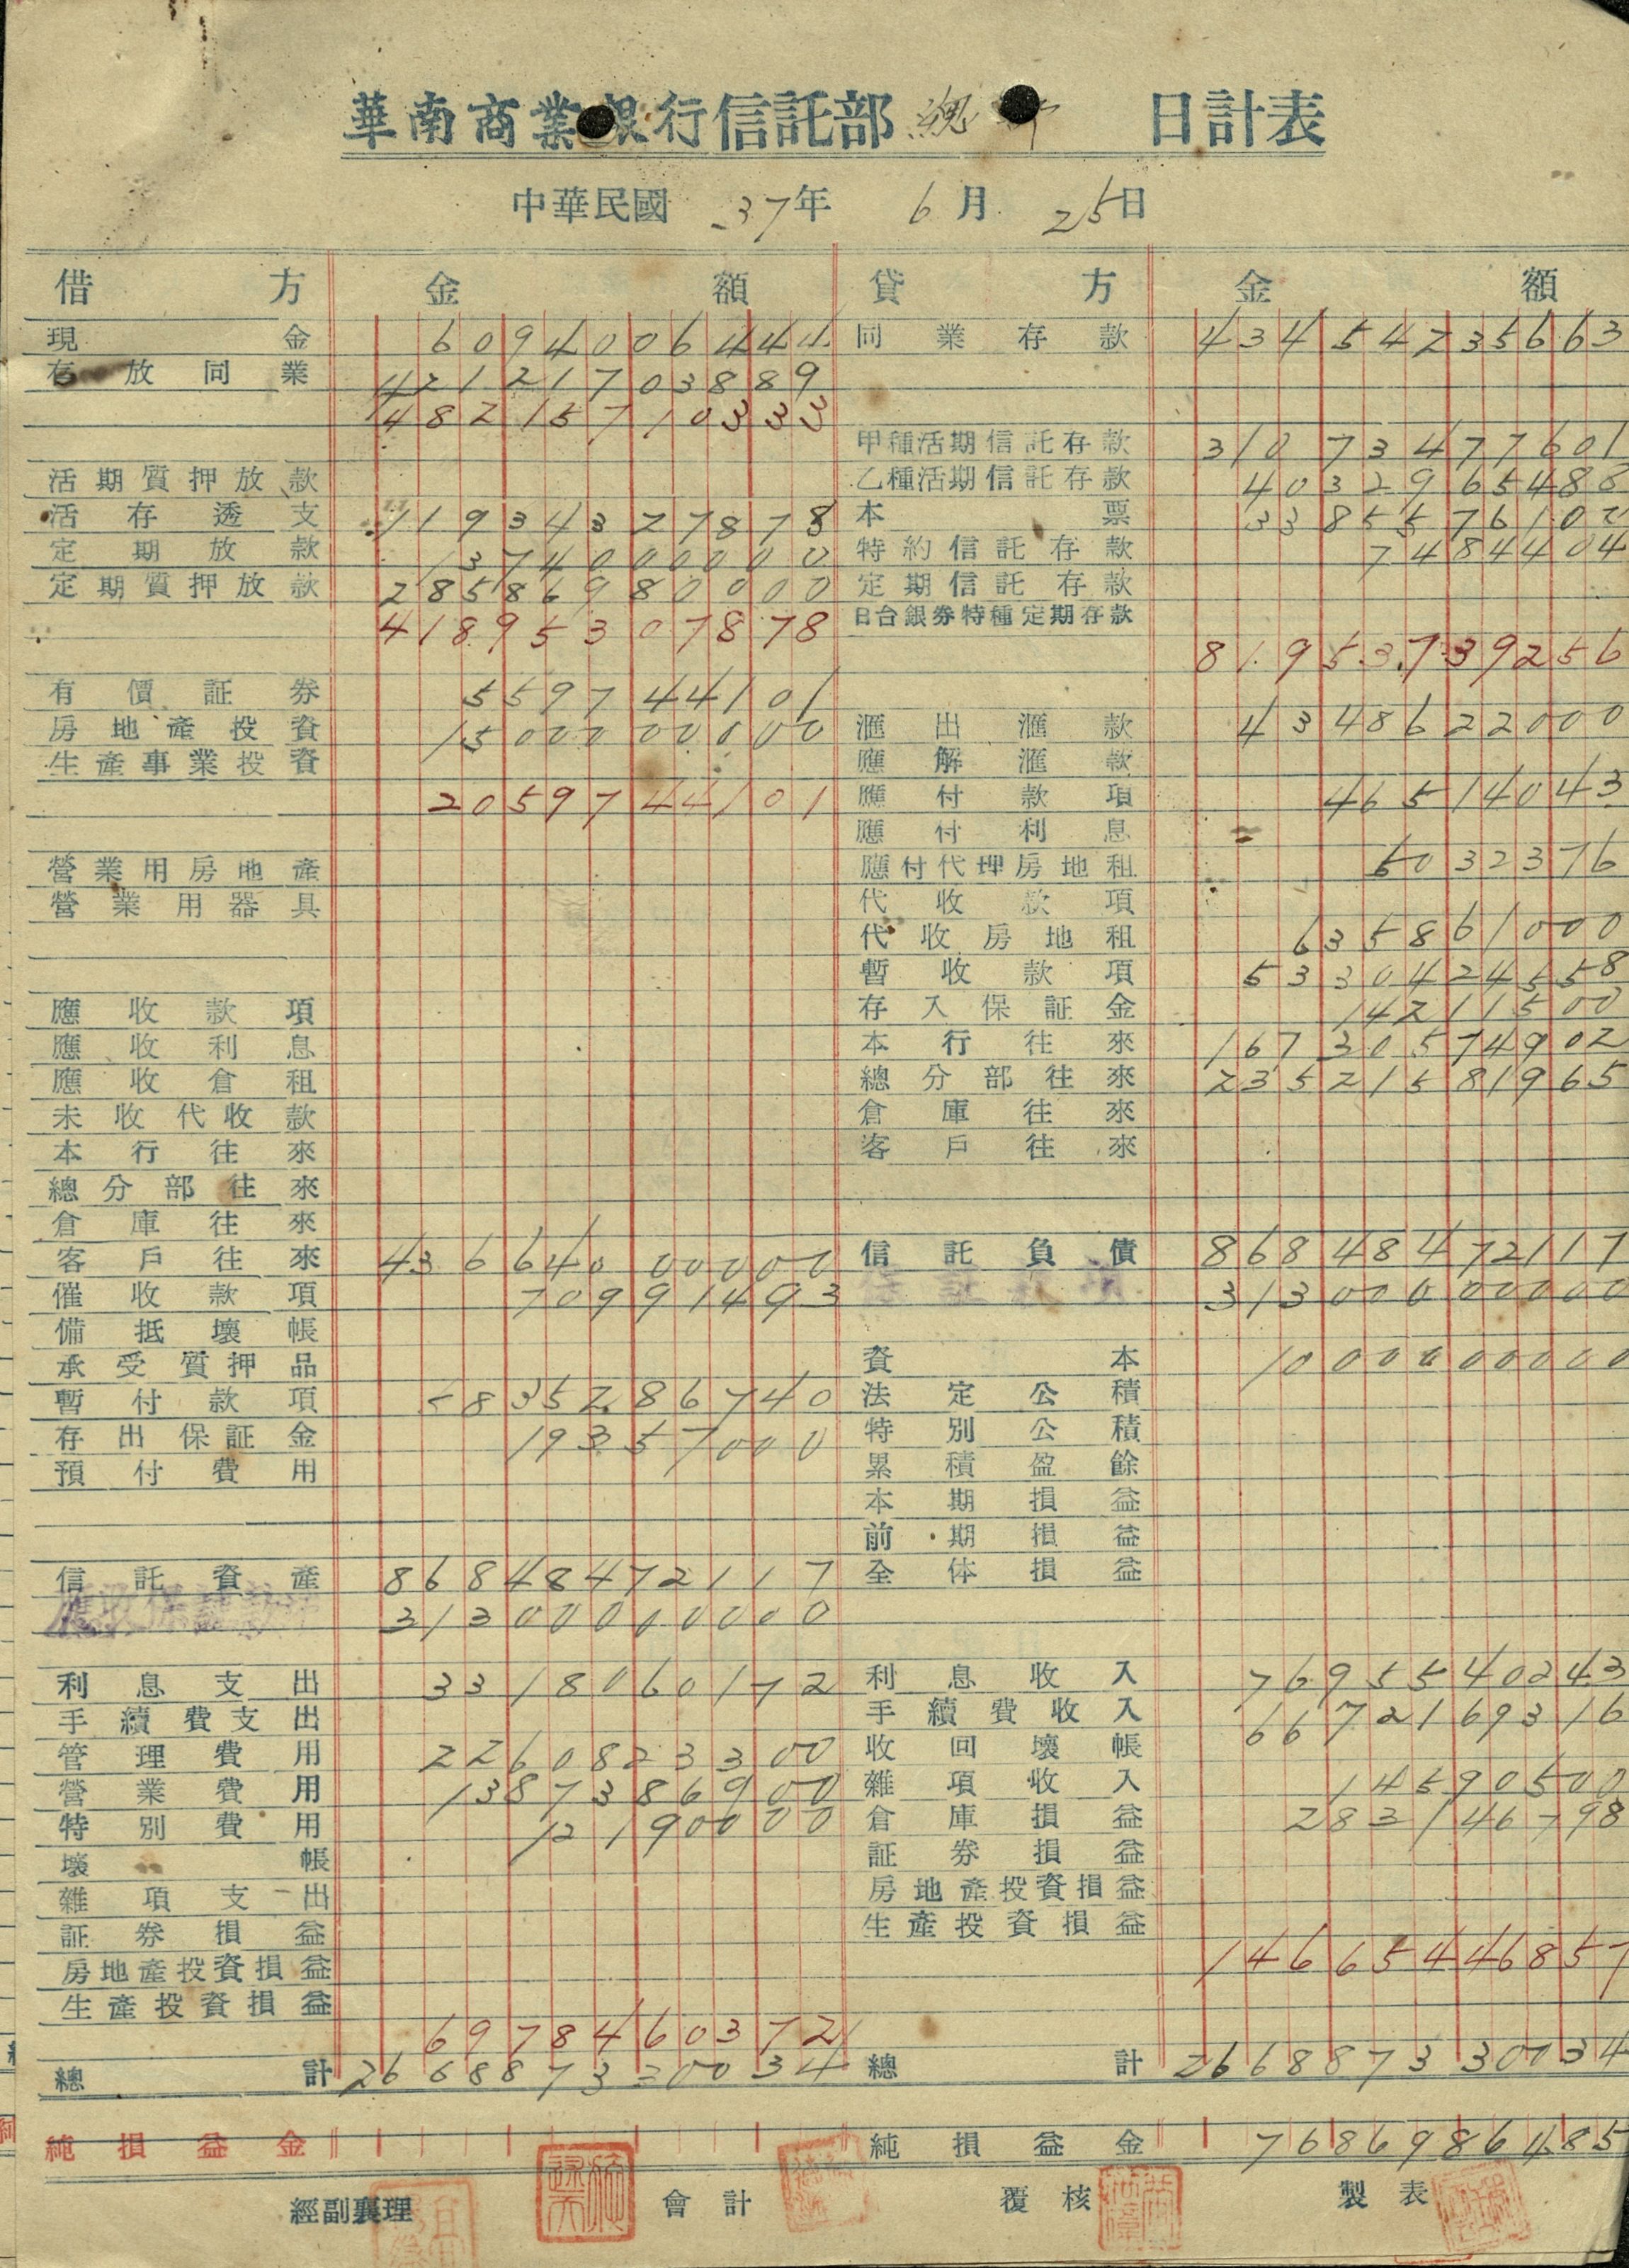 華南商業銀行信託部 總部 日計表
中華民國 37年 6月 25日
借方 金額 貸方 金額
現金 6094006444 同業存款 43454235663
存放同業 42121703889
48215710333
甲種活期信託存款 31073477601
活期質押放款 乙種活期信託存款 4032965488
活存透支 11934327878 本票 3385576100
定期放款 1374000000 特約信託存款 7484404
定期質押放款 28586980000 定期信託存款
41895307878 日台銀券特種定期存款
81953739256
有價証券 559744101
房地產投資 1500000000 滙出滙款 4348622000
生產事業投資 應解滙款
2059744101 應付款項 46514043
應付利息
營業用房地產 應付代理房地租 6032376
營業用器具 代收款項
代收房地租 635861000
暫收款項 5330424558
應收款項 存入保証金 14211500
應收利息 本行往來 16730574902
應收倉租 總分部往來 23521581965
未收代收款 倉庫往來
本行往來 客戶往來
總分部往來
倉庫往來
客戶往來 43664000000 信託負債 86848472117
催收款項 70991493 31300000000
備抵壞帳
承受質押品 資本 1000000000
暫付款項 5835286740 法定公積
存出保証金 19357000 特別公積
預付費用 累積盈餘
本期損益
前期損益
信託資產 86848472117 全体損益
應收保証款項 31300000000
利息支出 3318060172 利息收入 7695540243
手續費支出 手續費收入 6672169316
管理費用 2260823300 收回壞帳
營業費用 1387386900 雜項收入 14590500
特別費用 12190000 倉庫損益 283146798
壞帳 証券損益
雜項支出 房地產投資損益
証券損益 生產投資損益
房地產投資損益 14665446857
生產投資損益
6978460372
總計 266887330034 總計 266887330034
純損益金 純損益金 7686986485
經副襄理 會計 覆核 製表